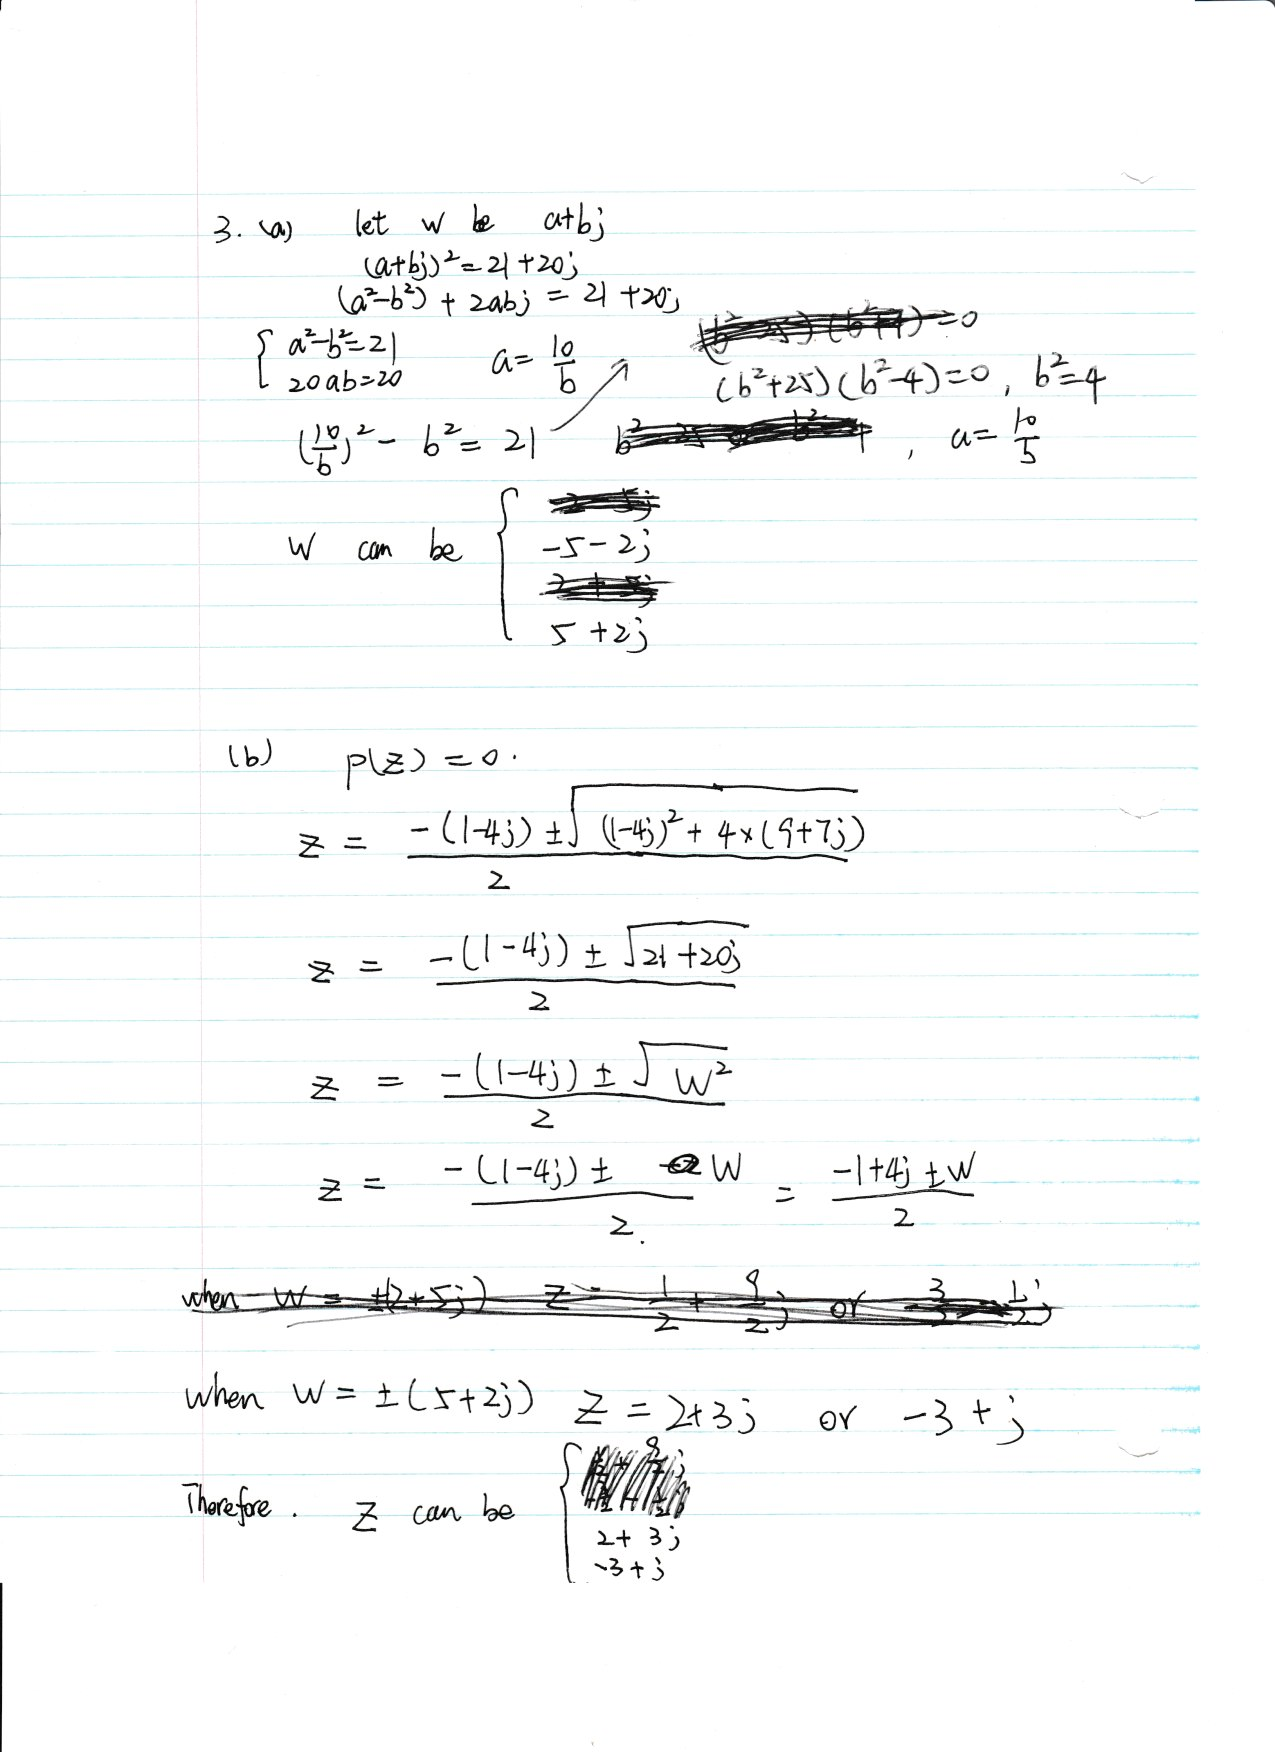 3. (a) let w be a+bj
(a+bj)² = 21+20j
(a²-b²) + 2abj = 21+20j
{ a²-b²=21
20ab=20
a= 10/b
(10/b)² - b² = 21
=0
(b²+25)(b²-4)=0, b²=4
, a= 10/5
w can be {
-5-2j
5+2j
(b) p(z) = 0.
z = (-(1-4j) ± √((1-4j)² + 4×(9+7j)))/2
z = (-(1-4j) ± √(21+20j))/2
z = (-(1-4j) ± √(w²))/2
z = (-(1-4j) ± w)/2. = (-1+4j ± w)/2
when w = ±(2+5j) z = 1/2 + 9/2 j or
when w = ±(5+2j) z = 2+3j or -3+j
Therefore. z can be {
2+3j
-3+j